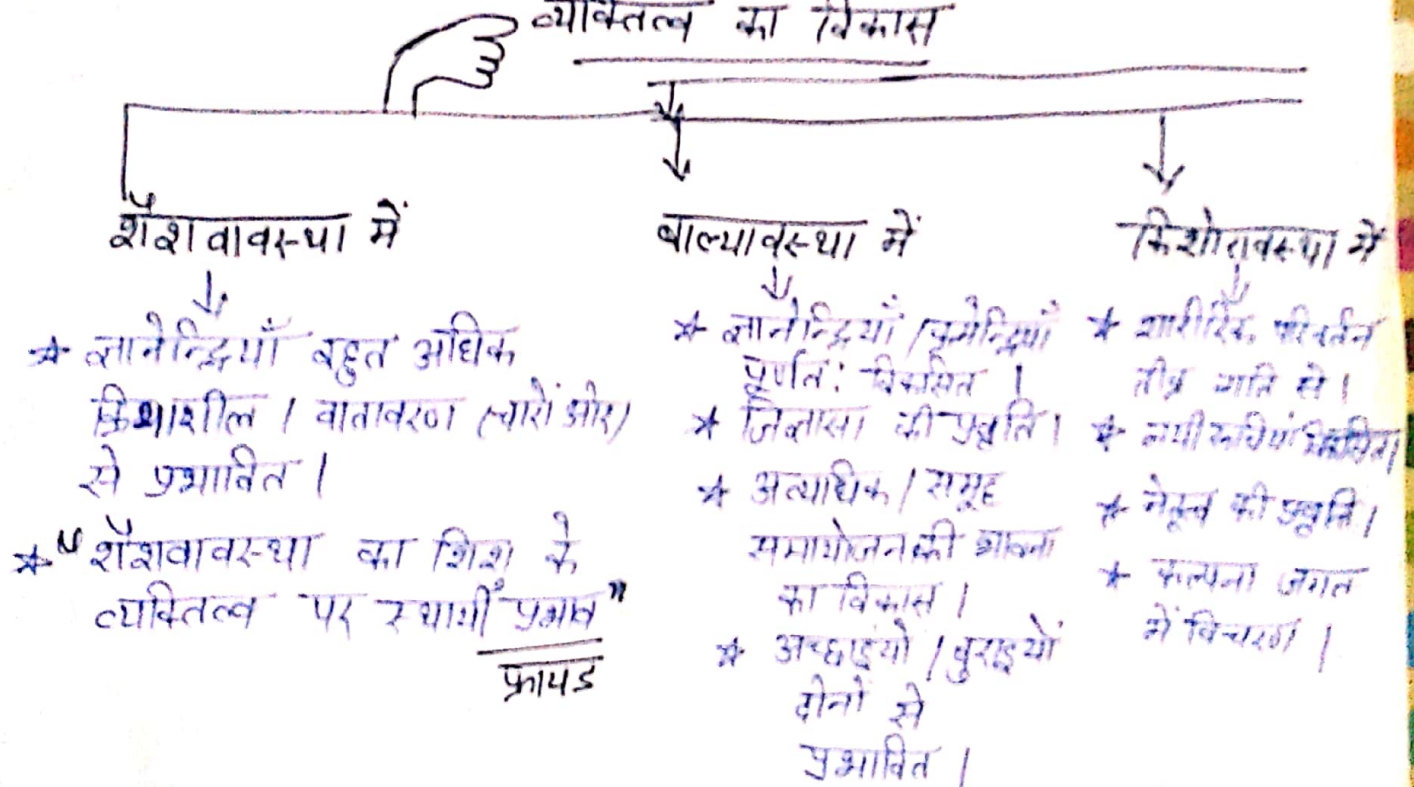 व्यक्तित्व का विकास
शैशवावस्था में
★ ज्ञानेन्द्रियाँ बहुत अधिक
क्रियाशील / वातावरण (चारों ओर)
से प्रभावित |
★ "शैशवावस्था का शिशु के
व्यक्तित्व पर स्थायी प्रभाव"
फ्रायड
बाल्यावस्था में
★ ज्ञानेन्द्रियाँ / कर्मेन्द्रियाँ
पूर्णतः विकसित |
★ जिज्ञासा की प्रवृति |
★ अत्याधिक / समूह
समायोजन की भावना
का विकास |
★ अच्छाइयों / बुराइयों
दोनों से
प्रभावित |
किशोरावस्था में
★ शारीरिक परिवर्तन
तीव्र गति से |
★ नयी रुचियां विकसित |
★ नेतृत्व की प्रवृति |
★ कल्पना जगत
में विचरण |